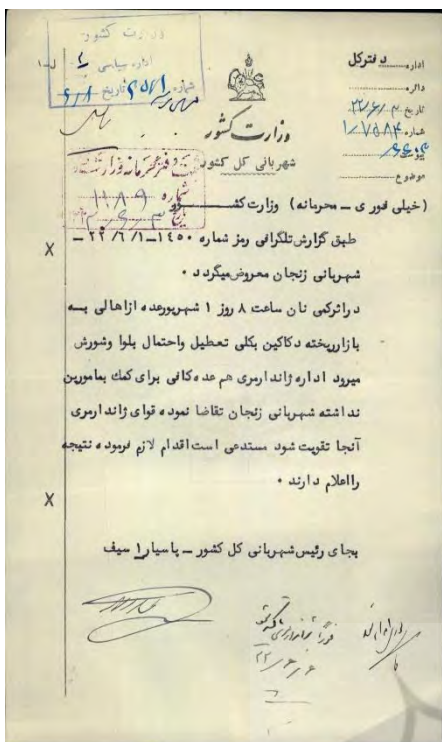 وزارت کشور
اداره سیاسی
شماره تاریخ ۶/۸
اداره دفترکل
دائره
تاریخ ۲۲/۶/۳
شماره ۱/۷۵۸۴
پیوست
موضوع
وزارت کشور
شهربانی کل کشور
ثبت دفتر محرمانه وزارت کشور
شماره ۱۱۸۰۹
تاریخ
(خیلی فوری ـ محرمانه) وزارت کشـــــور
طبق گزارش تلگرافی رمز شماره ۱۴۵۰ـ۲۲/۶/۱ ـ
شهربانی زنجان معروض میگردد ۰
دراثرکمی نان ساعت ۸ روز ۱ شهریورعده ازاهالی بسه
بازارریخته دکاکین بکلی تعطیل واحتمال بلوا وشورش
میرود اداره ژاندارمری هم عده کافی برای کمک بمامورین
نداشته شهربانی زنجان تقاضا نموده قوای ژاندارمری
آنجا تقویت شود مستدعی است اقدام لازم فرموده نتیجه
رااعلام دارند ۰
بجای رئیس شهربانی کل کشور ـ پاسیار۱ سیف
فوراً
۲۲/۶/۶